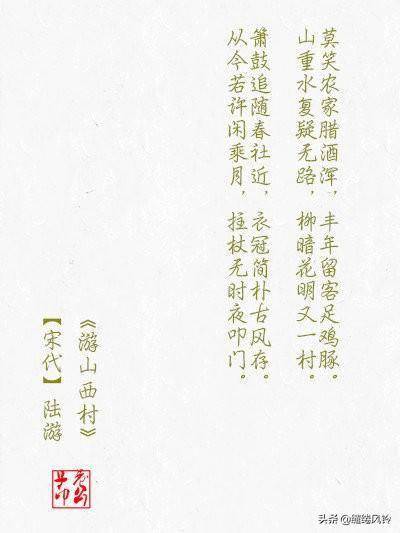 莫笑农家腊酒浑，丰年留客足鸡豚。
山重水复疑无路，柳暗花明又一村。
箫鼓追随春社近，衣冠简朴古风存。
从今若许闲乘月，拄杖无时夜叩门。
《游山西村》
【宋代】 陆游
头条 @缱绻风铃